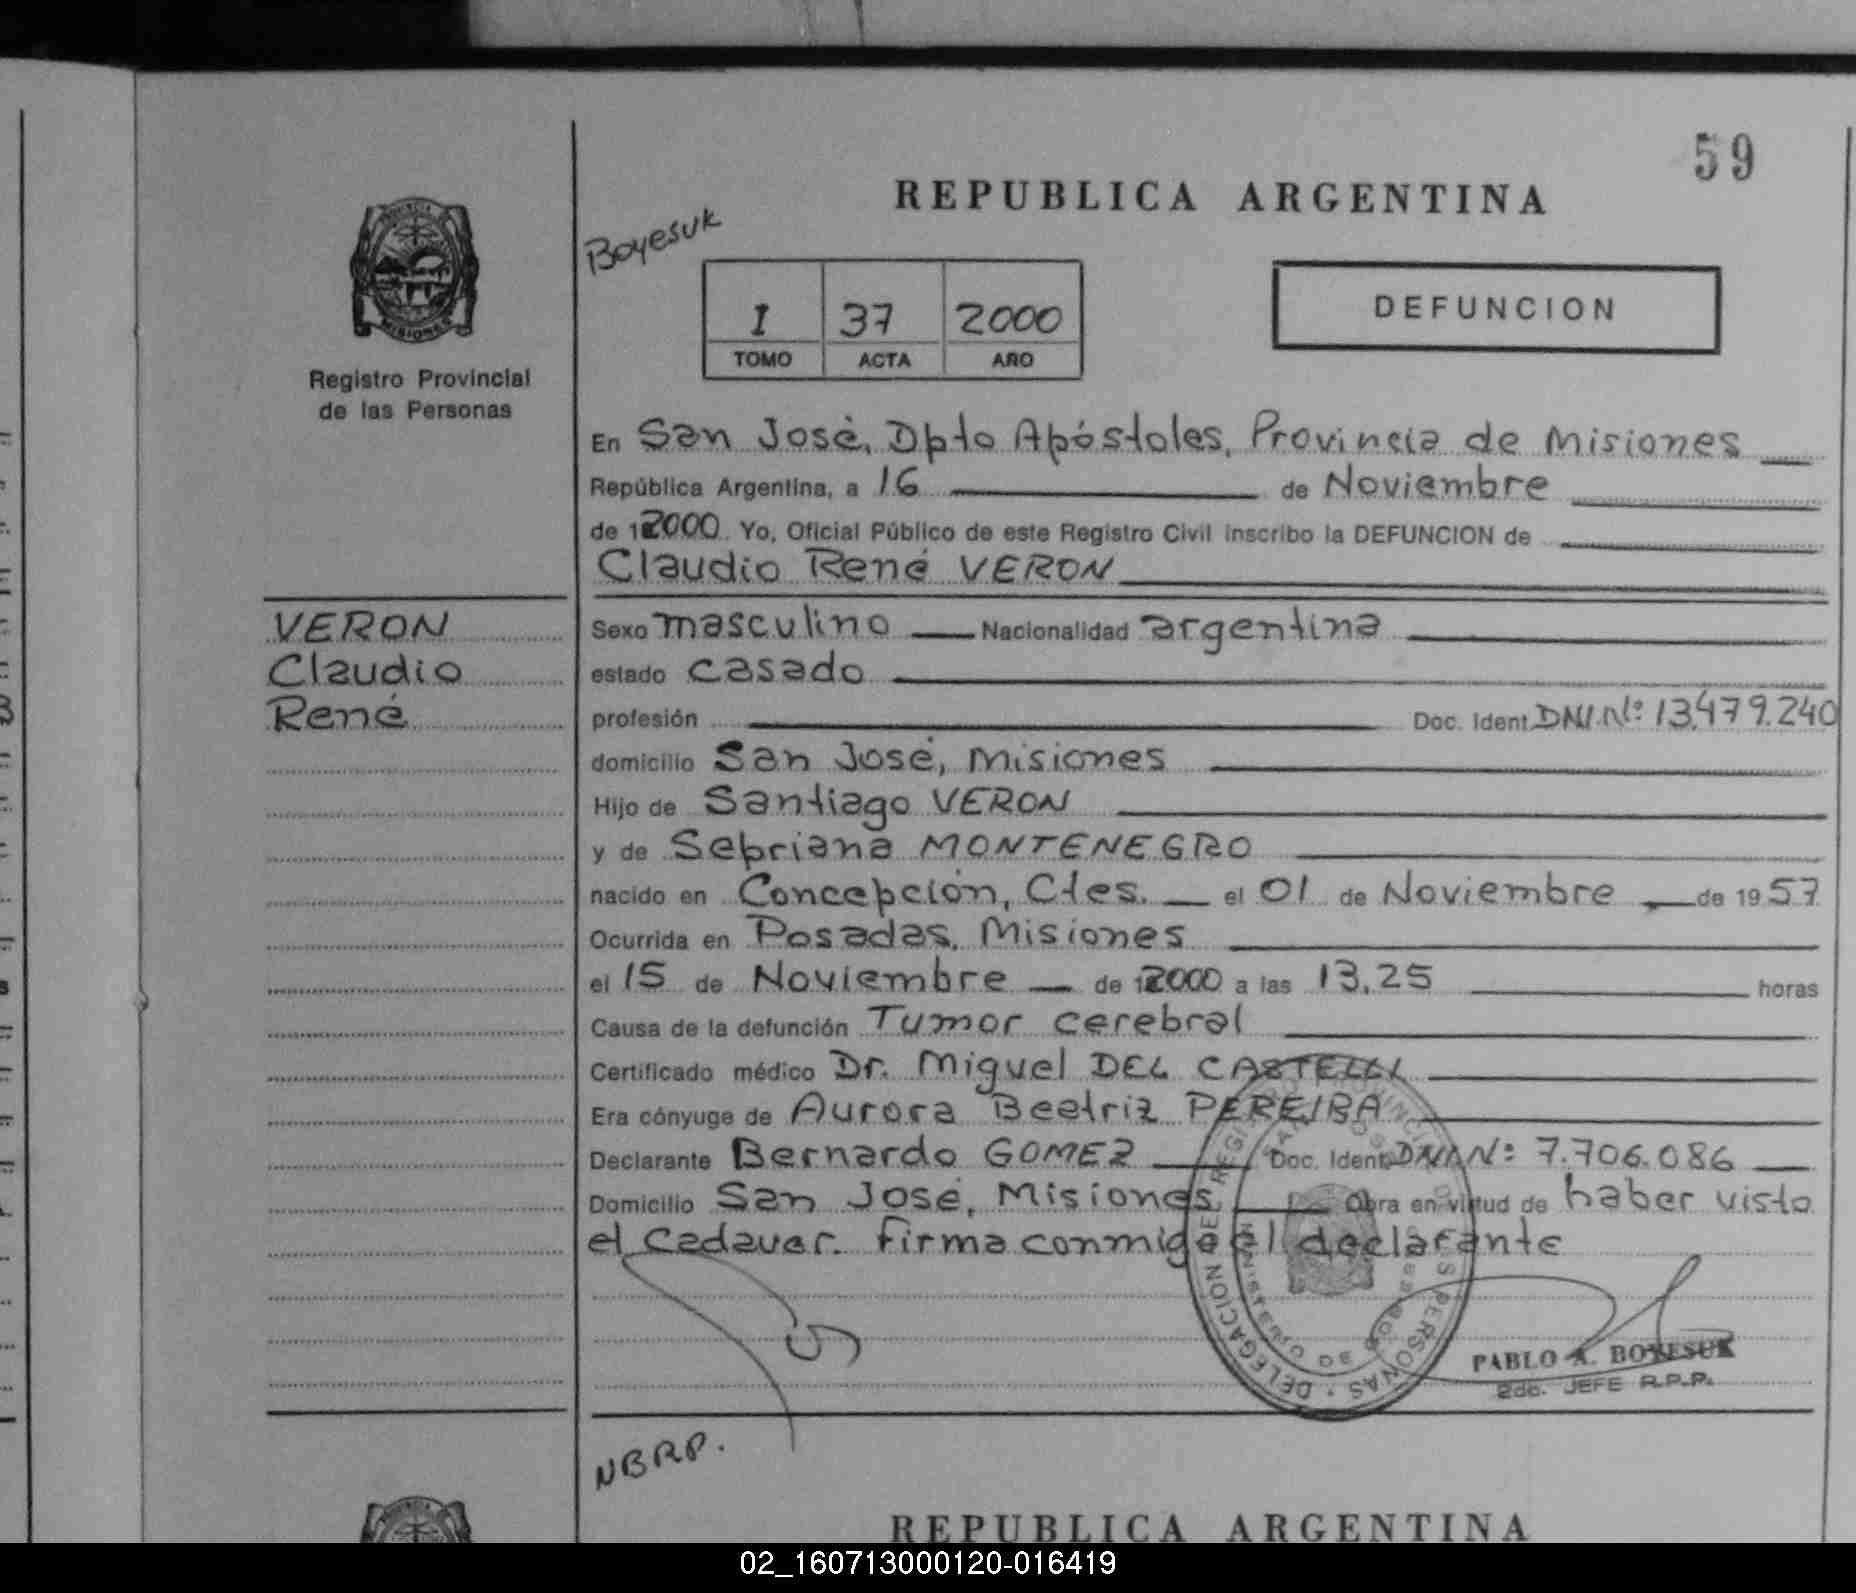 59
REPUBLICA ARGENTINA
Boyesuk
I 37 2000
TOMO ACTA AÑO
DEFUNCION
PROVINCIA
MISIONES
Registro Provincial
de las Personas
En San José, Dpto Apóstoles, Provincia de Misiones
República Argentina, a 16 de Noviembre
de 2000 Yo, Oficial Público de este Registro Civil inscribo la DEFUNCION de
Claudio René VERON
VERON
Claudio
René
Sexo masculino Nacionalidad argentina
estado casado
profesión Doc. Ident. DNI. Nº: 13.479.240
domicilio San José, Misiones
Hijo de Santiago VERON
y de Sebriana MONTENEGRO
nacido en Concepción, Ctes. el 01 de Noviembre de 1957
Ocurrida en Posadas, Misiones
el 15 de Noviembre de 2000 a las 13,25 horas
Causa de la defunción Tumor cerebral
Certificado médico Dr. Miguel DEL CASTELLI
Era cónyuge de Aurora Beatriz PEREIRA
Declarante Bernardo GOMEZ Doc. Ident. DNI Nº: 7.706.086
Domicilio San José, Misiones Obra en virtud de haber visto
el Cadaver. Firma conmigo el declarante
DELEGACION DEL REGISTRO PROVINCIAL DE LAS PERSONAS
PABLO A. BOYESUK
2do. JEFE R.P.P.
NBRP.
REPUBLICA ARGENTINA
02_160713000120-016419